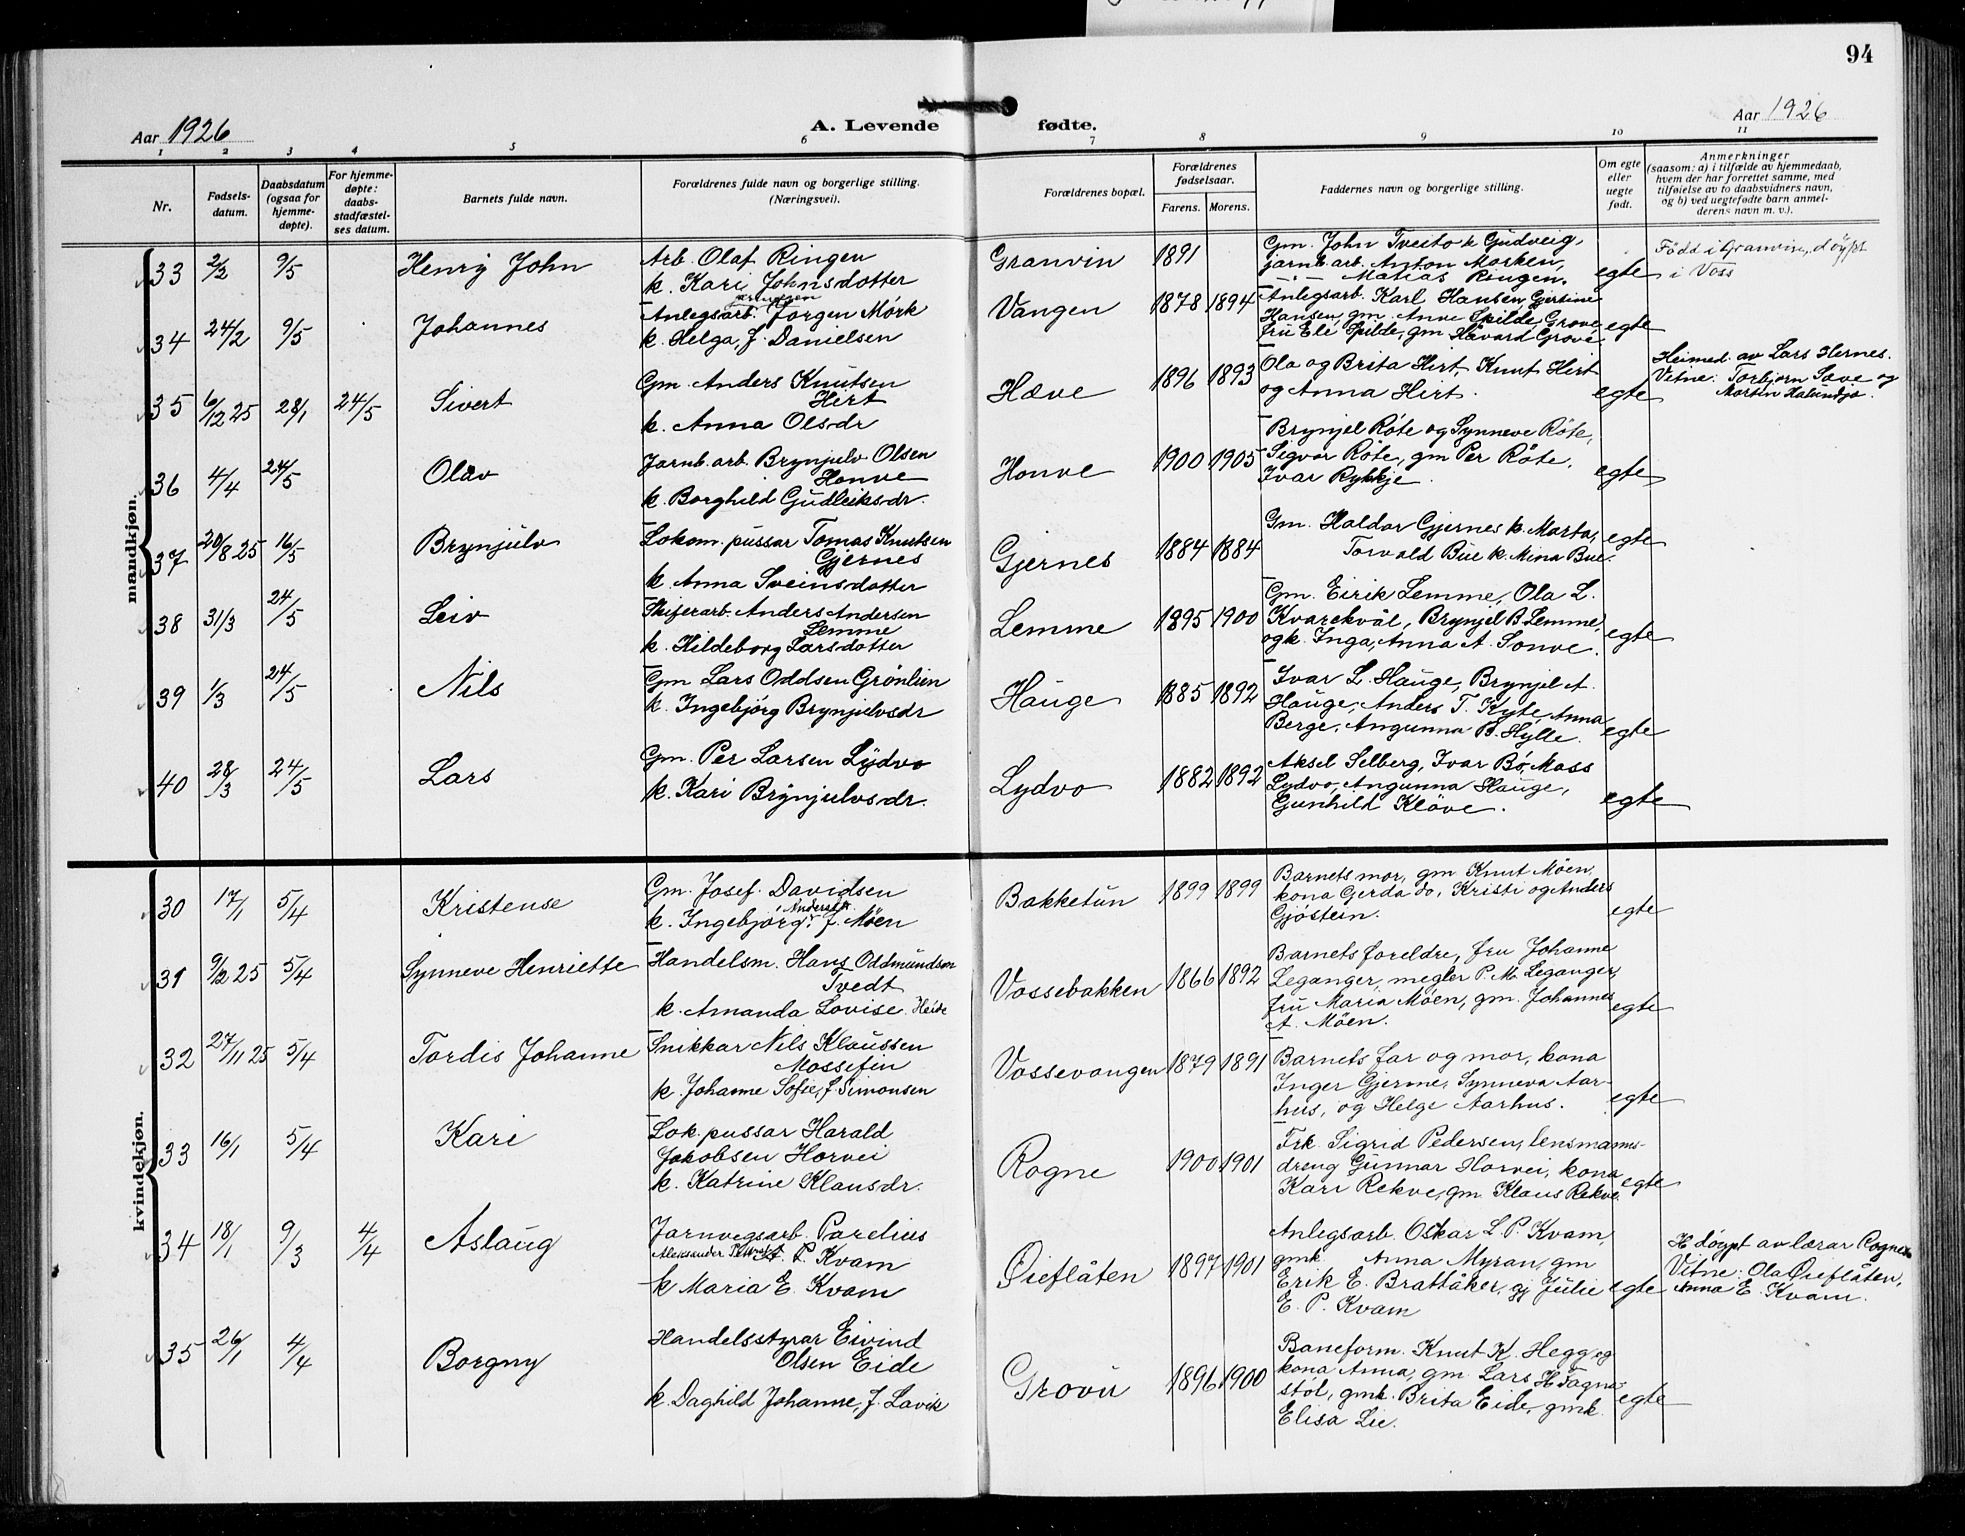 94
Aar 1926
A. Levende fødte.
Aar 1926
1 2 3 4 5 6 7 8 9 10 11
Nr.
Fødsels-
datum.
Daabsdatum
(ogsaa for
hjemme-
døpte).
For hjemme-
døpte:
daabs-
stadfæstel-
ses datum.
Barnets fulde navn.
Forældrenes fulde navn og borgerlige stilling.
(Næringsvei).
Forældrenes bopæl.
Forældrenes
fødselsaar.
Farens. Morens.
Faddernes navn og borgerlige stilling.
Om egte
eller
uegte
født.
Anmerkninger
(saasom: a) i tilfælde av hjemmedaab,
hvem der har forrettet samme, med
tilføielse av to daabsvidners navn,
og b) ved uegtefødte barn anmel-
derens navn m. v.).
mandkjøn.
33 2/2 9/5 Henry John
Arb. Olaf Ringen
k. Kari Johnsdotter
Granvin 1891
Gm. John Tveito k Gudveig,
jarnb.arb. Anton Morken,
Matias Ringen.
egte
Född i Granvin, döypt
i Voss
34 24/2 9/5 Johannes
Anlegsarb. Jørgen Mørk
k. Helga, f. Danielsen
Vangen 1878 1894
Anlegsarb. Karl Hansen, Gjertine
Hansen, gm. Anve Spilde, Grove
fru Eli Spilde, gm Håvard Grove.
egte
35 6/12 25 28/1 24/5 Sivert
Gm. Anders Knutsen
Hirt
k. Anna Olsdr
Hæve 1896 1893
Ola og Brita Hirt, Knut Hirt
og Anna Hirt.
egte
Heimed. av Lars Hernes.
Vitne: Torbjørn Sæve og
36 4/4 24/5 Olav
Jarnb.arb. Brynjulv Olsen
Honve
k. Borghild Gudleiksdr.
Honve 1900 1905
Brynjel Røte og Synneve Røte,
Sigvor Røte, gm Per Røte.
Ivar Rykkje.
egte
37 20/8 25 16/5 Brynjulv
Lokom. pussar Tomas Knutsen
Gjernes
k. Anna Sveinsdotter
Gjernes 1884 1884
Gm. Haldor Gjernes k. Marta,
Torvald Bue k. Mina Bue.
egte
38 31/3 24/5 Leiv
Skiferarb. Anders Andersen
Lemme
k. Hildeborg Larsdotter
Lemme 1895 1900
Gm. Eirik Lemme, Ola L.
Kvarekvål, Brynjel B Lemme,
og k. Inga, Anna A. Sonve.
egte
39 1/3 24/5 Nils
Gm Lars Oddsen Grønlien
k. Ingebjørg Brynjulvsdr
Hauge 1885 1892
Ivar L. Hauge, Brynjel A.
Hauge, Anders T. Kyte, Anna
Berge, Angunna B. Hylle.
egte
40 28/3 24/5 Lars
Gm. Per Larsen Lydvo
k. Kari Brynjulvsdr.
Lydvo 1882 1892
Aksel Selberg, Ivar Bø, Mass
Lydvo, Angunna Hauge,
Gunhild Kløve.
egte
kvindekjøn.
30 17/1 5/4 Kristense
Gm. Josef Davidsen
k. Ingebjørg f. Möen
Bakketun 1899 1899
Barnets mor, gm Knut Möen,
kona Gerda do, Kristi og Anders
Gjøstein.
egte
31 9/2 25 5/4 Synneve Henriette
Handelsm. Hans Oddmundson
Tvedt
k. Amanda Lovise
Vossebakken 1866 1892
Barnets foreldre, fru Johanne
Leganger, megler P. M. Leganger,
fru Maria Möen, gm. Johannes
A. Möen.
egte
32 27/11 25 5/4 Tordis Johanne
Snikkar Nils Klaussen
Mossefin
k. Johanne Sofie, f Simonsen
Vossevangen 1879 1891
Barnets far og mor, kona
Inger Gjerme, Synneva Aar-
hus, og Helge Aarhus.
egte
33 16/1 5/4 Kari
Lok. pussar Harald
Jakobsen Horvei
k. Katrine Klausdr.
Rogne 1900 1901
Frk. Sigrid Pedersen, lensmanns-
dreng Gunnar Horvei, kona
Kari Rekve, gm Klaus Rekve.
egte
34 18/1 9/3 4/4 Aslaug
Jarnvegsarb. Parelius
P. Kvam
k Maria E. Kvam
Øieflåten 1897 1901
Anlegsarb. Oskar L. P. Kvam,
gmk. Anna Myran, gm
Erik E. Brattåker, gj Julie
E. P. Kvam
egte
H.døypt av lærar Rogne.
Vitne: Ola Øieflåten,
Anna E. Kvam.
35 26/1 4/4 Borgny
Handelsstyrar Eivind
Olsen Eide
k. Daghild Johanne, f. Lavik
Grovu 1896 1900
Baneform. Knut K. Hegg og
kona Anna, gm. Lars H Fagna-
støl, gmk. Brita Eide, gmk.
Elisa Lie.
egte